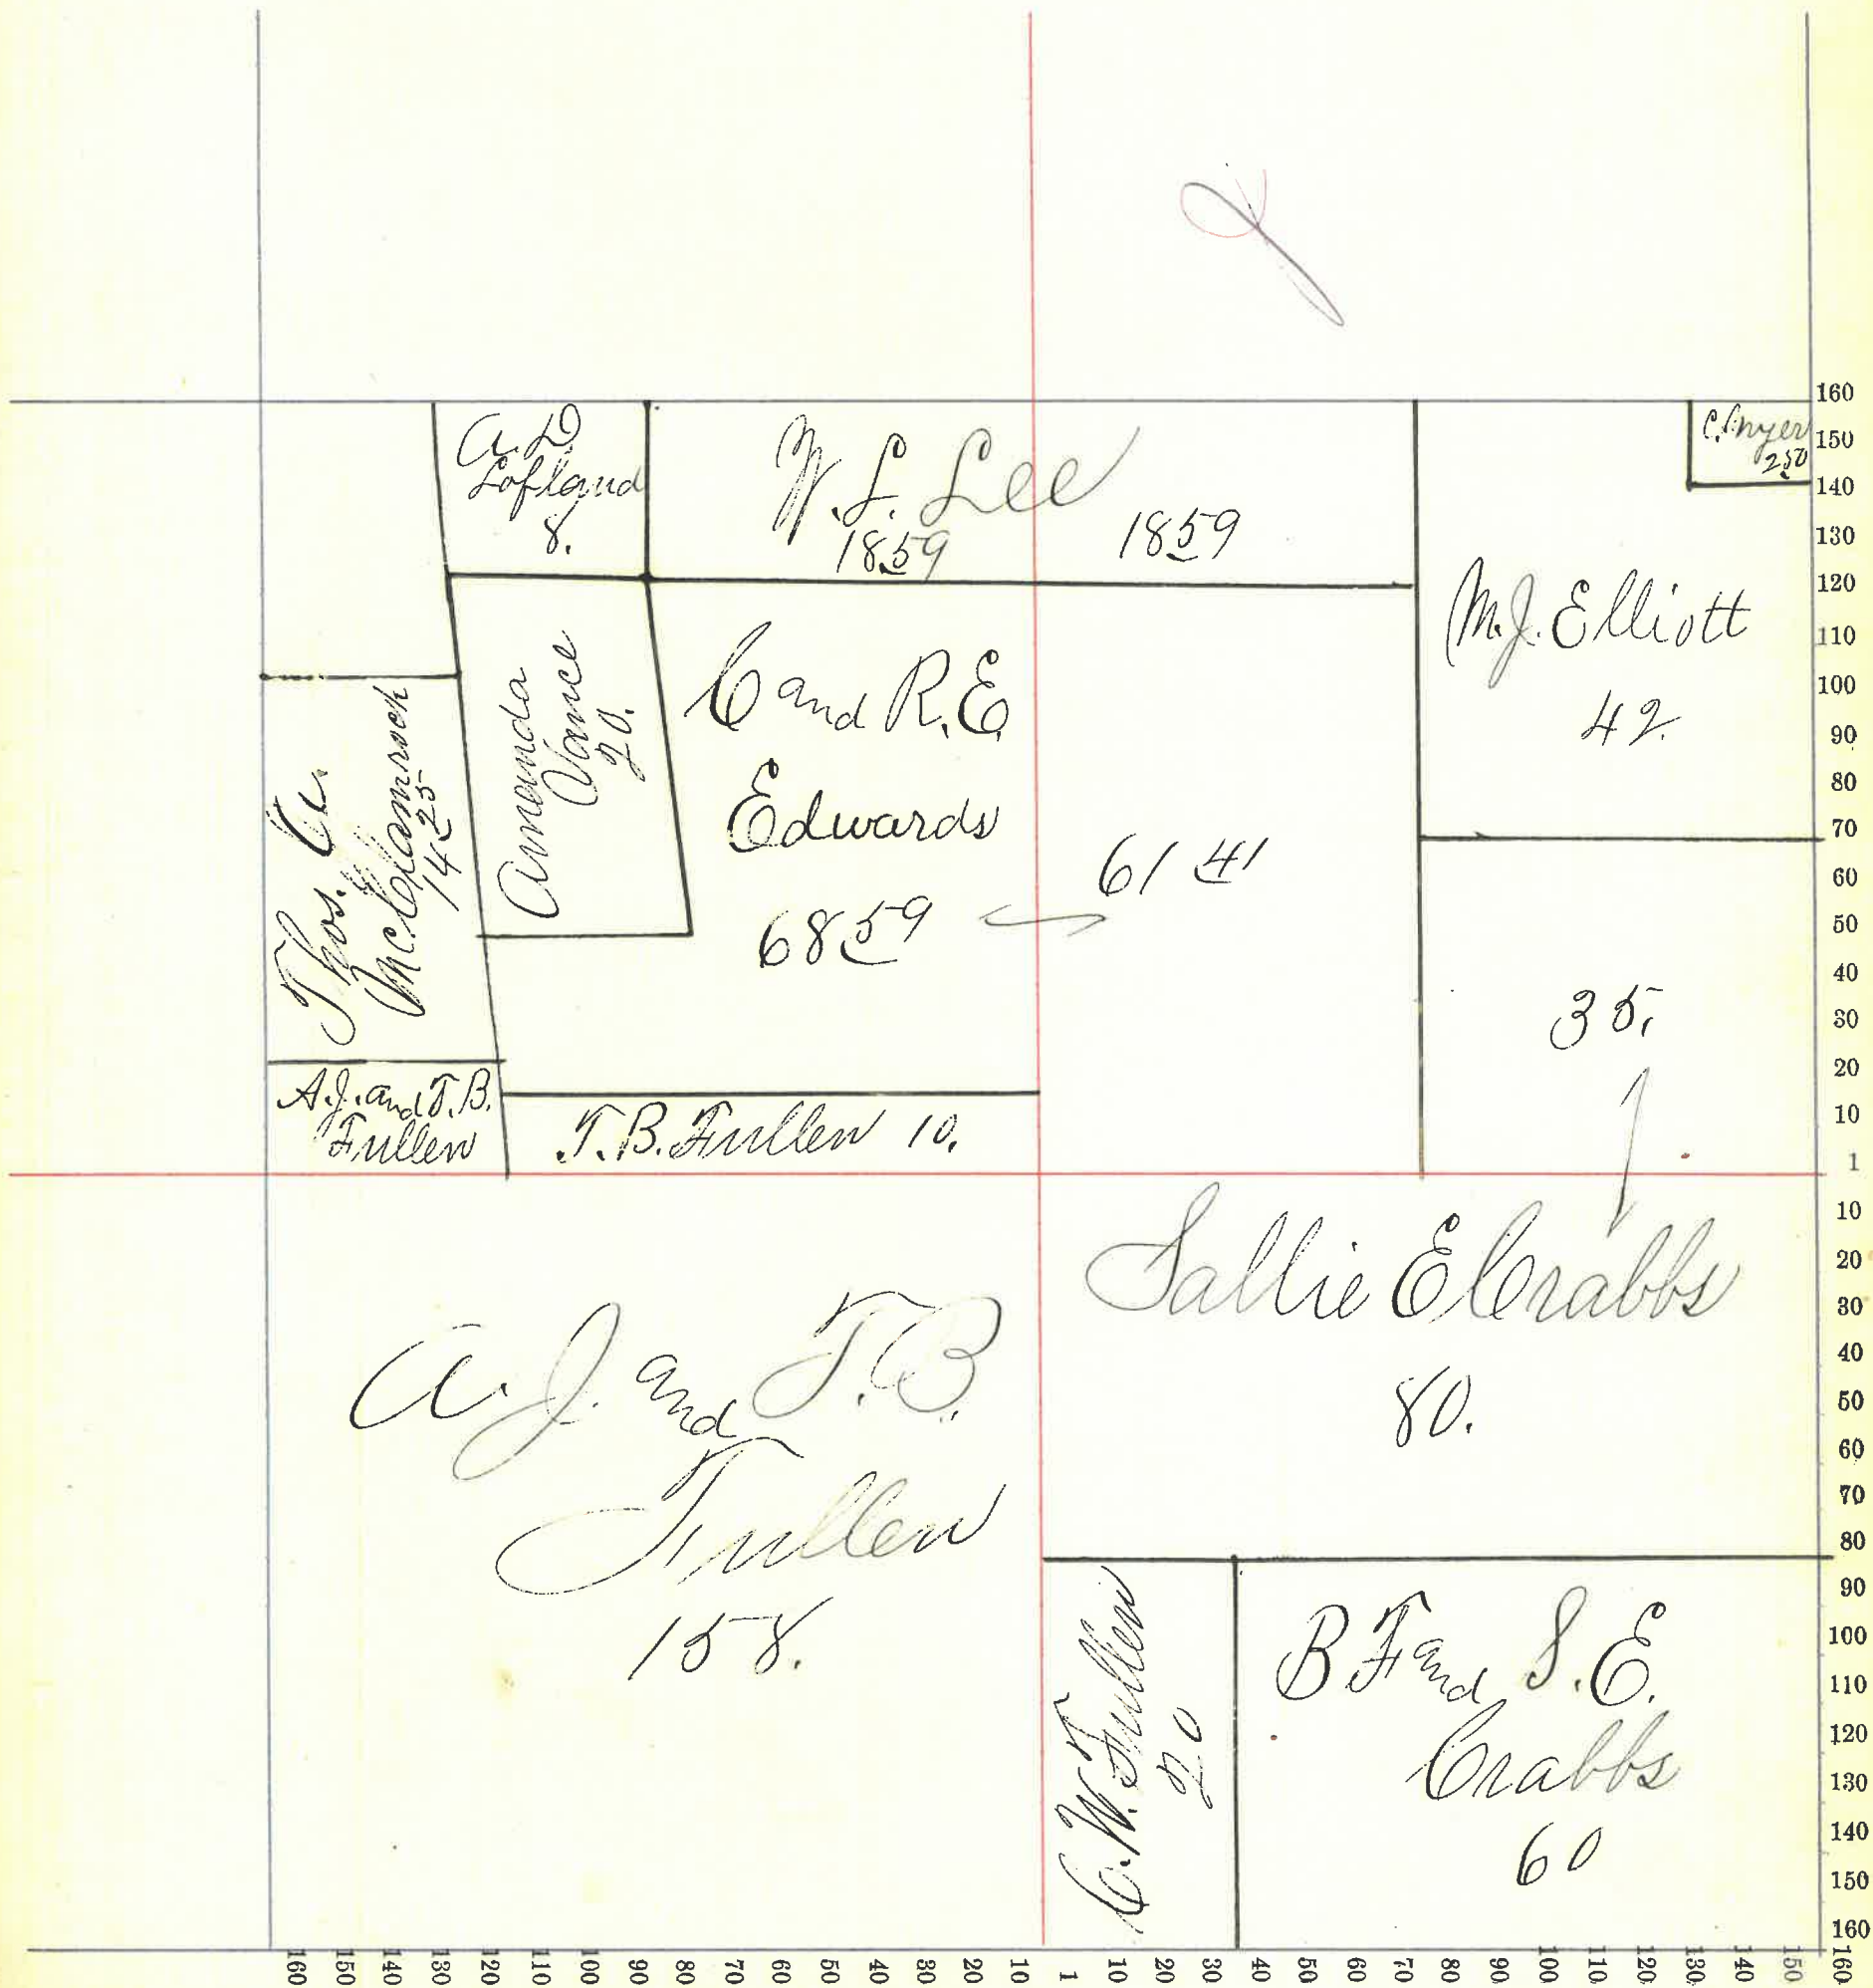 A. D
Lofland
8.
W. L. Lee
1859
1859
C. Myer
250
M. J. Elliott
42.
Amanda
Vance
20.
C and R. E.
Edwards
6859
6141
Thos. A.
McClamroch
1425
35.
A. J. and T. B.
Fullen
T. B. Fullen 10.
Sallie E Crabbs
80.
A. J. and T. B.
Fullen
158.
C. W. Fullen
20
B F and S. E.
Crabbs
60
160
150
140
130
120
110
100
90
80
70
60
50
40
30
20
10
1
10
20
30
40
50
60
70
80
90
100
110
120
130
140
150
160
160 150 140 130 120 110 100 90 80 70 60 50 40 30 20 10 1 10 20 30 40 50 60 70 80 90 100 110 120 130 140 150 160